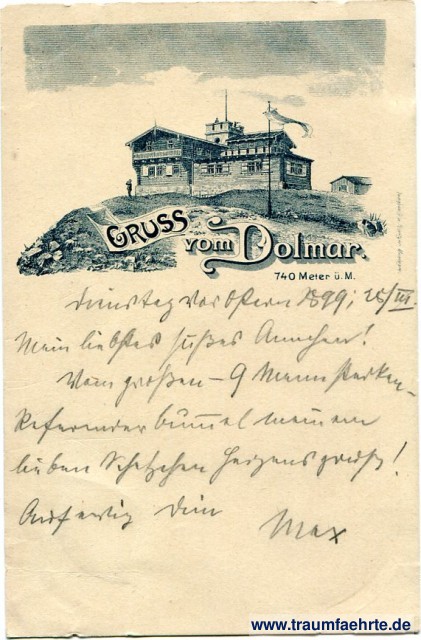 GRUSS
vom Dolmar.
740 Meter ü. M.
Dienstag vor Ostern 1899; 28/III.
Mein liebstes süßes Annchen!
Vom großen – 9 Mann starken –
Referendarbummel meinem
lieben Schatzchen Herzensgrüße!
Auf ewig Dein
Max
www.traumfaehrte.de